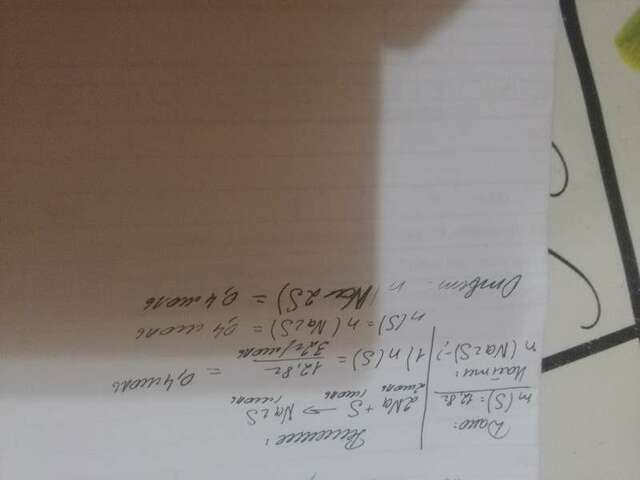 Дано:
m(S) = 12,8г
Найти:
n(Na2S)-?
Решение:
2моль 1моль 1моль
2Na + S → Na2S
1) n(S) = 12,8г / 32г/моль = 0,4моль
n(S) = n(Na2S) = 0,4 моль
Ответ: n(Na2S) = 0,4моль